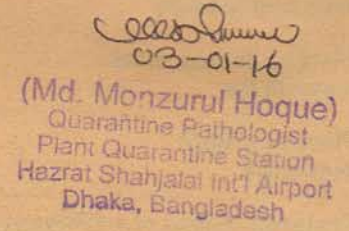 03-01-16
(Md. Monzurul Hoque)
Quarantine Pathologist
Plant Quarantine Station
Hazrat Shahjalal Int'l Airport
Dhaka, Bangladesh